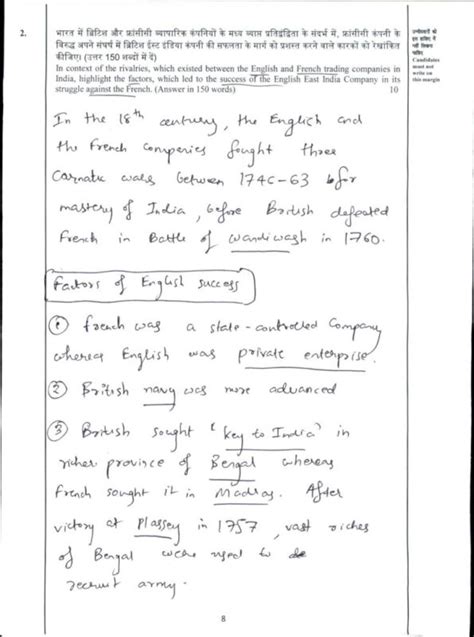 2.
भारत में ब्रिटिश और फ्रांसीसी व्यापारिक कंपनियों के मध्य व्याप्त प्रतिद्वंद्विता के संदर्भ में, फ्रांसीसी कंपनी के
विरुद्ध अपने संघर्ष में ब्रिटिश ईस्ट इंडिया कंपनी की सफलता के मार्ग को प्रशस्त करने वाले कारकों को रेखांकित
कीजिए। (उत्तर 150 शब्दों में दें)
In context of the rivalries, which existed between the English and French trading companies in
India, highlight the factors, which led to the success of the English East India Company in its
struggle against the French. (Answer in 150 words) 10
उम्मीदवारों को
इस हाशिए में
नहीं लिखना
चाहिए
Candidates
must not
write on
this margin
In the 18th century, the English and
the French companies fought three
Carnatic wars between 1746-63 for
mastery of India, before British defeated
French in Battle of wandiwash in 1760.
Factors of English success
① French was a state-controlled Company
whereas English was private enterprise.
② British navy was more advanced
③ British sought 'key to India' in
richer province of Bengal whereas
French sought it in Madras. After
victory at Plassey in 1757, vast riches
of Bengal were used to
recruit army.
8